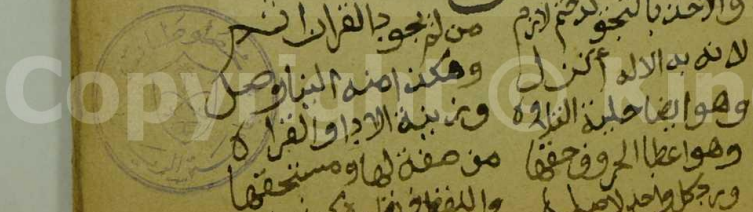 والاخذ بالتجويد حتم لازم من لم يجود القران اثم
لانه به الاله أنزل وهكذا منه الينا وصل
وهو ايضا حلية التلاوة وزينة الادا والقراة
وهو اعطا الحروف حقها من صفة لها ومستحقها
ورد كل واحد لاصله واللفظ في
Copyright © Kin